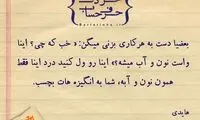 حرف و
حرف حساب
بعضیا دست به هرکاری بزنی میگن: « خب که چی؟ اینا
واست نون و آب میشه؟» اینا رو ول کنید درد اینا فقط
همون نون و آبه، شما به انگیزه هات بچسب.
هایدی